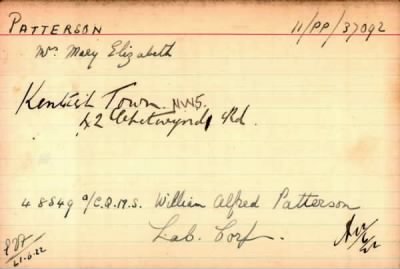 PATTERSON 11/PP/37092
Mrs Mary Elizabeth
Kentish Town. N.W.5.
42 Chetwynd Rd.
48849 a/C.Q.M.S. William Alfred Patterson
Lab. Corps.
21.6.22